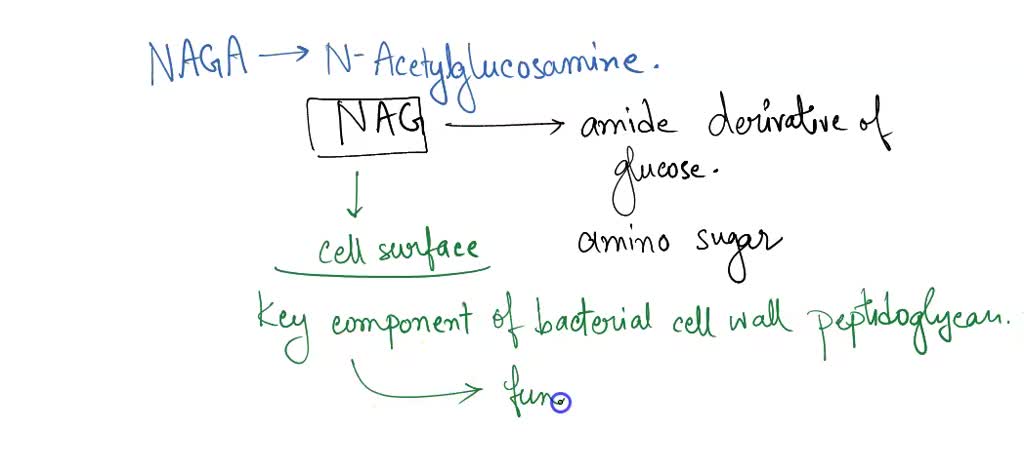 NAGA → N-Acetylglucosamine.
NAG → amide derivative of
glucose.
cell surface amino sugar
key component of bacterial cell wall peptidoglycan.
→ fun